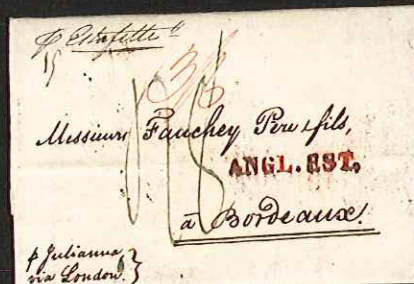 p Estafette
15
3/8
Messieurs Fauchey Pere & fils,
ANGL. EST.
à Bordeaux.
p Julianna,
via London.